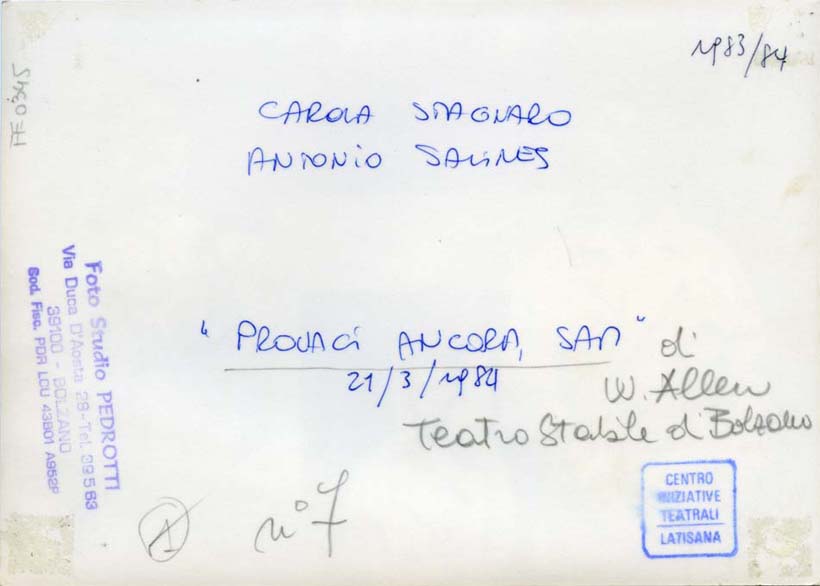 1983/84
CAROLA STAGNARO
ANTONIO SALINES
"PROVACI ANCORA, SAM" di
21/3/1984
W. Allen
Teatro Stabile di Bolzano
n° 7
Foto Studio PEDROTTI
Via Duca D'Aosta 28 - Tel. 39563
39100 - BOLZANO
Cod. Fisc. PDR LDU 43B01 A952P
CENTRO
INIZIATIVE
TEATRALI
LATISANA